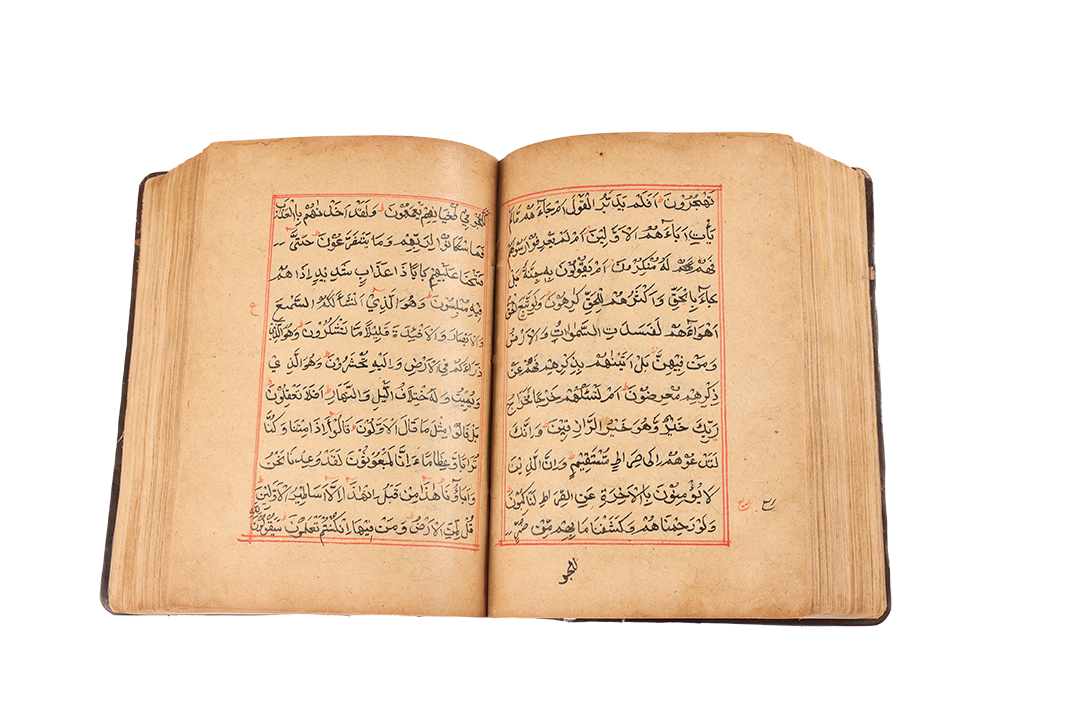 تَهْجُرُونَ اَفَلَمْ يَدَّبَّرُ الْقَوْلَ اَمْ جَاءَ هُمْ مَّالَمْ
يَأْتِ ابَاءَهُمُ الْاَوَّلِينَ اَمْ لَمْ يَعْرِفُوْا رَسُوْلَهُمْ
فَهُمْ لَهُ مُنْكِرُونَ اَمْ يَقُوْلُوْنَ بِهِ جِنَّةٌ بَلْ
جَاءَ بِالْحَقِّ وَاَكْثَرُهُمْ لِلْحَقِّ كَارِهُوْنَ وَلَوِ اتَّبَعَ الْحَقُّ
اَهْوَاءَهُمْ لَفَسَدَتِ السَّمٰوَاتُ وَالْاَرْضُ
وَمَنْ فِيْهِنَّ بَلْ اَتَيْنٰهُمْ بِذِكْرِهِمْ فَهُمْ عَنْ
ذِكْرِهِمْ مُعْرِضُوْنَ اَمْ تَسْئَلُهُمْ خَرْجًا فَخَرَاجُ
رَبِّكَ خَيْرٌ وَهُوَ خَيْرُ الرَّازِقِيْنَ وَاِنَّكَ
لَتَدْعُوْهُمْ اِلٰى صِرَاطٍ مُّسْتَقِيْمٍ وَاِنَّ الَّذِيْنَ
لَا يُؤْمِنُوْنَ بِالْاٰخِرَةِ عَنِ الصِّرَاطِ لَنَاكِبُوْنَ
وَلَوْ رَحِمْنَاهُمْ وَكَشَفْنَا مَا بِهِمْ مِّنْ ضُرٍّ
للجو
لَّلَجُّوْا فِيْ طُغْيَانِهِمْ يَعْمَهُوْنَ وَلَقَدْ اَخَذْنٰهُمْ بِالْعَذَابِ
فَمَا اسْتَكَانُوْا لِرَبِّهِمْ وَمَا يَتَضَرَّعُوْنَ حَتّٰى
فَتَحْنَا عَلَيْهِمْ بَابًا ذَا عَذَابٍ شَدِيْدٍ اِذَا هُمْ
فِيْهِ مُبْلِسُوْنَ وَهُوَ الَّذِيْ اَنْشَأَ لَكُمُ السَّمْعَ
وَالْاَبْصَارَ وَالْاَفْئِدَةَ قَلِيْلًا مَّا تَشْكُرُوْنَ وَهُوَ الَّذِيْ
ذَرَاَكُمْ فِي الْاَرْضِ وَاِلَيْهِ تُحْشَرُوْنَ وَهُوَ الَّذِيْ
وَيُمِيْتُ وَلَهُ اخْتِلَافُ الَّيْلِ وَالنَّهَارِ اَفَلَا تَعْقِلُوْنَ
بَلْ قَالُوْا مِثْلَ مَا قَالَ الْاَوَّلُوْنَ قَالُوْا ءَاِذَا مِتْنَا وَكُنَّا
تُرَابًا وَّعِظَامًا ءَاِنَّا لَمَبْعُوْثُوْنَ لَقَدْ وُعِدْنَا نَحْنُ
وَاٰبَاؤُنَا هٰذَا مِنْ قَبْلُ اِنْ هٰذَا اِلَّا اَسَاطِيْرُ الْاَوَّلِيْنَ
قُلْ لِّمَنِ الْاَرْضُ وَمَنْ فِيْهَا اِنْ كُنْتُمْ تَعْلَمُوْنَ سَيَقُوْلُوْنَ
ع